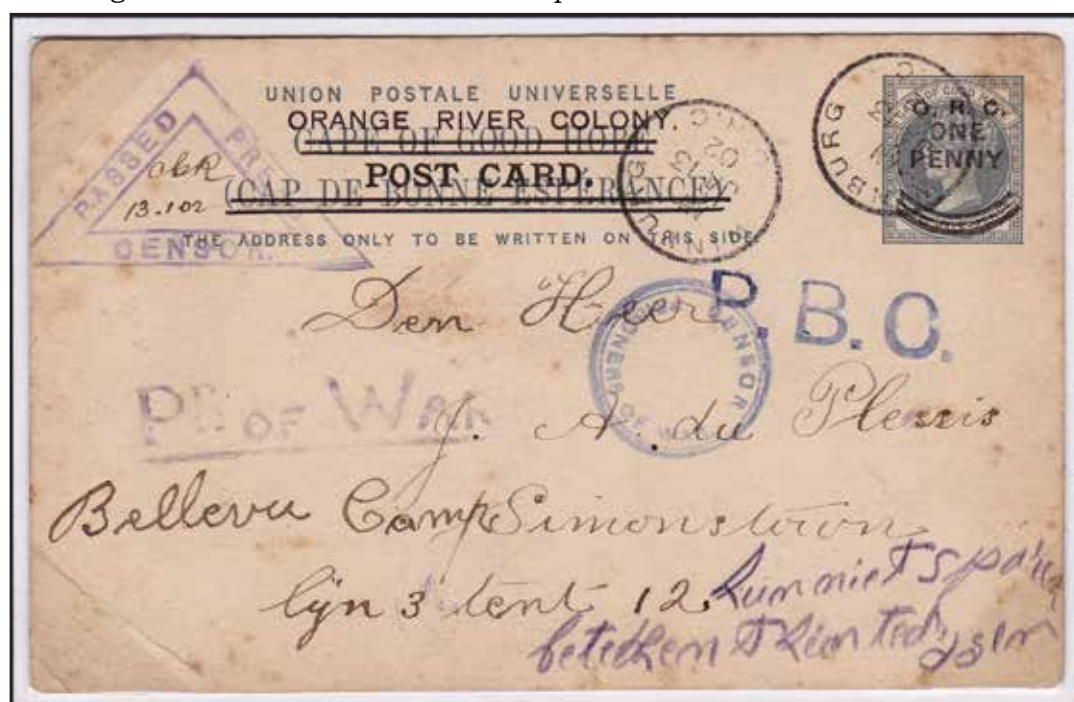 UNION POSTALE UNIVERSELLE
ORANGE RIVER COLONY.
CAPE OF GOOD HOPE
POST CARD.
(CAP DE BONNE ESPERANCE)
THE ADDRESS ONLY TO BE WRITTEN ON THIS SIDE.
O. R. C.
ONE
PENNY
PASSED
CENSOR.
13.1 02
BURG
Den Heer
P.B.C.
CENSOR
OF WAR
PR. OF WAR
J. A. du Plessis
Bellevu Camp Simonstown
lyn 3 tent 12